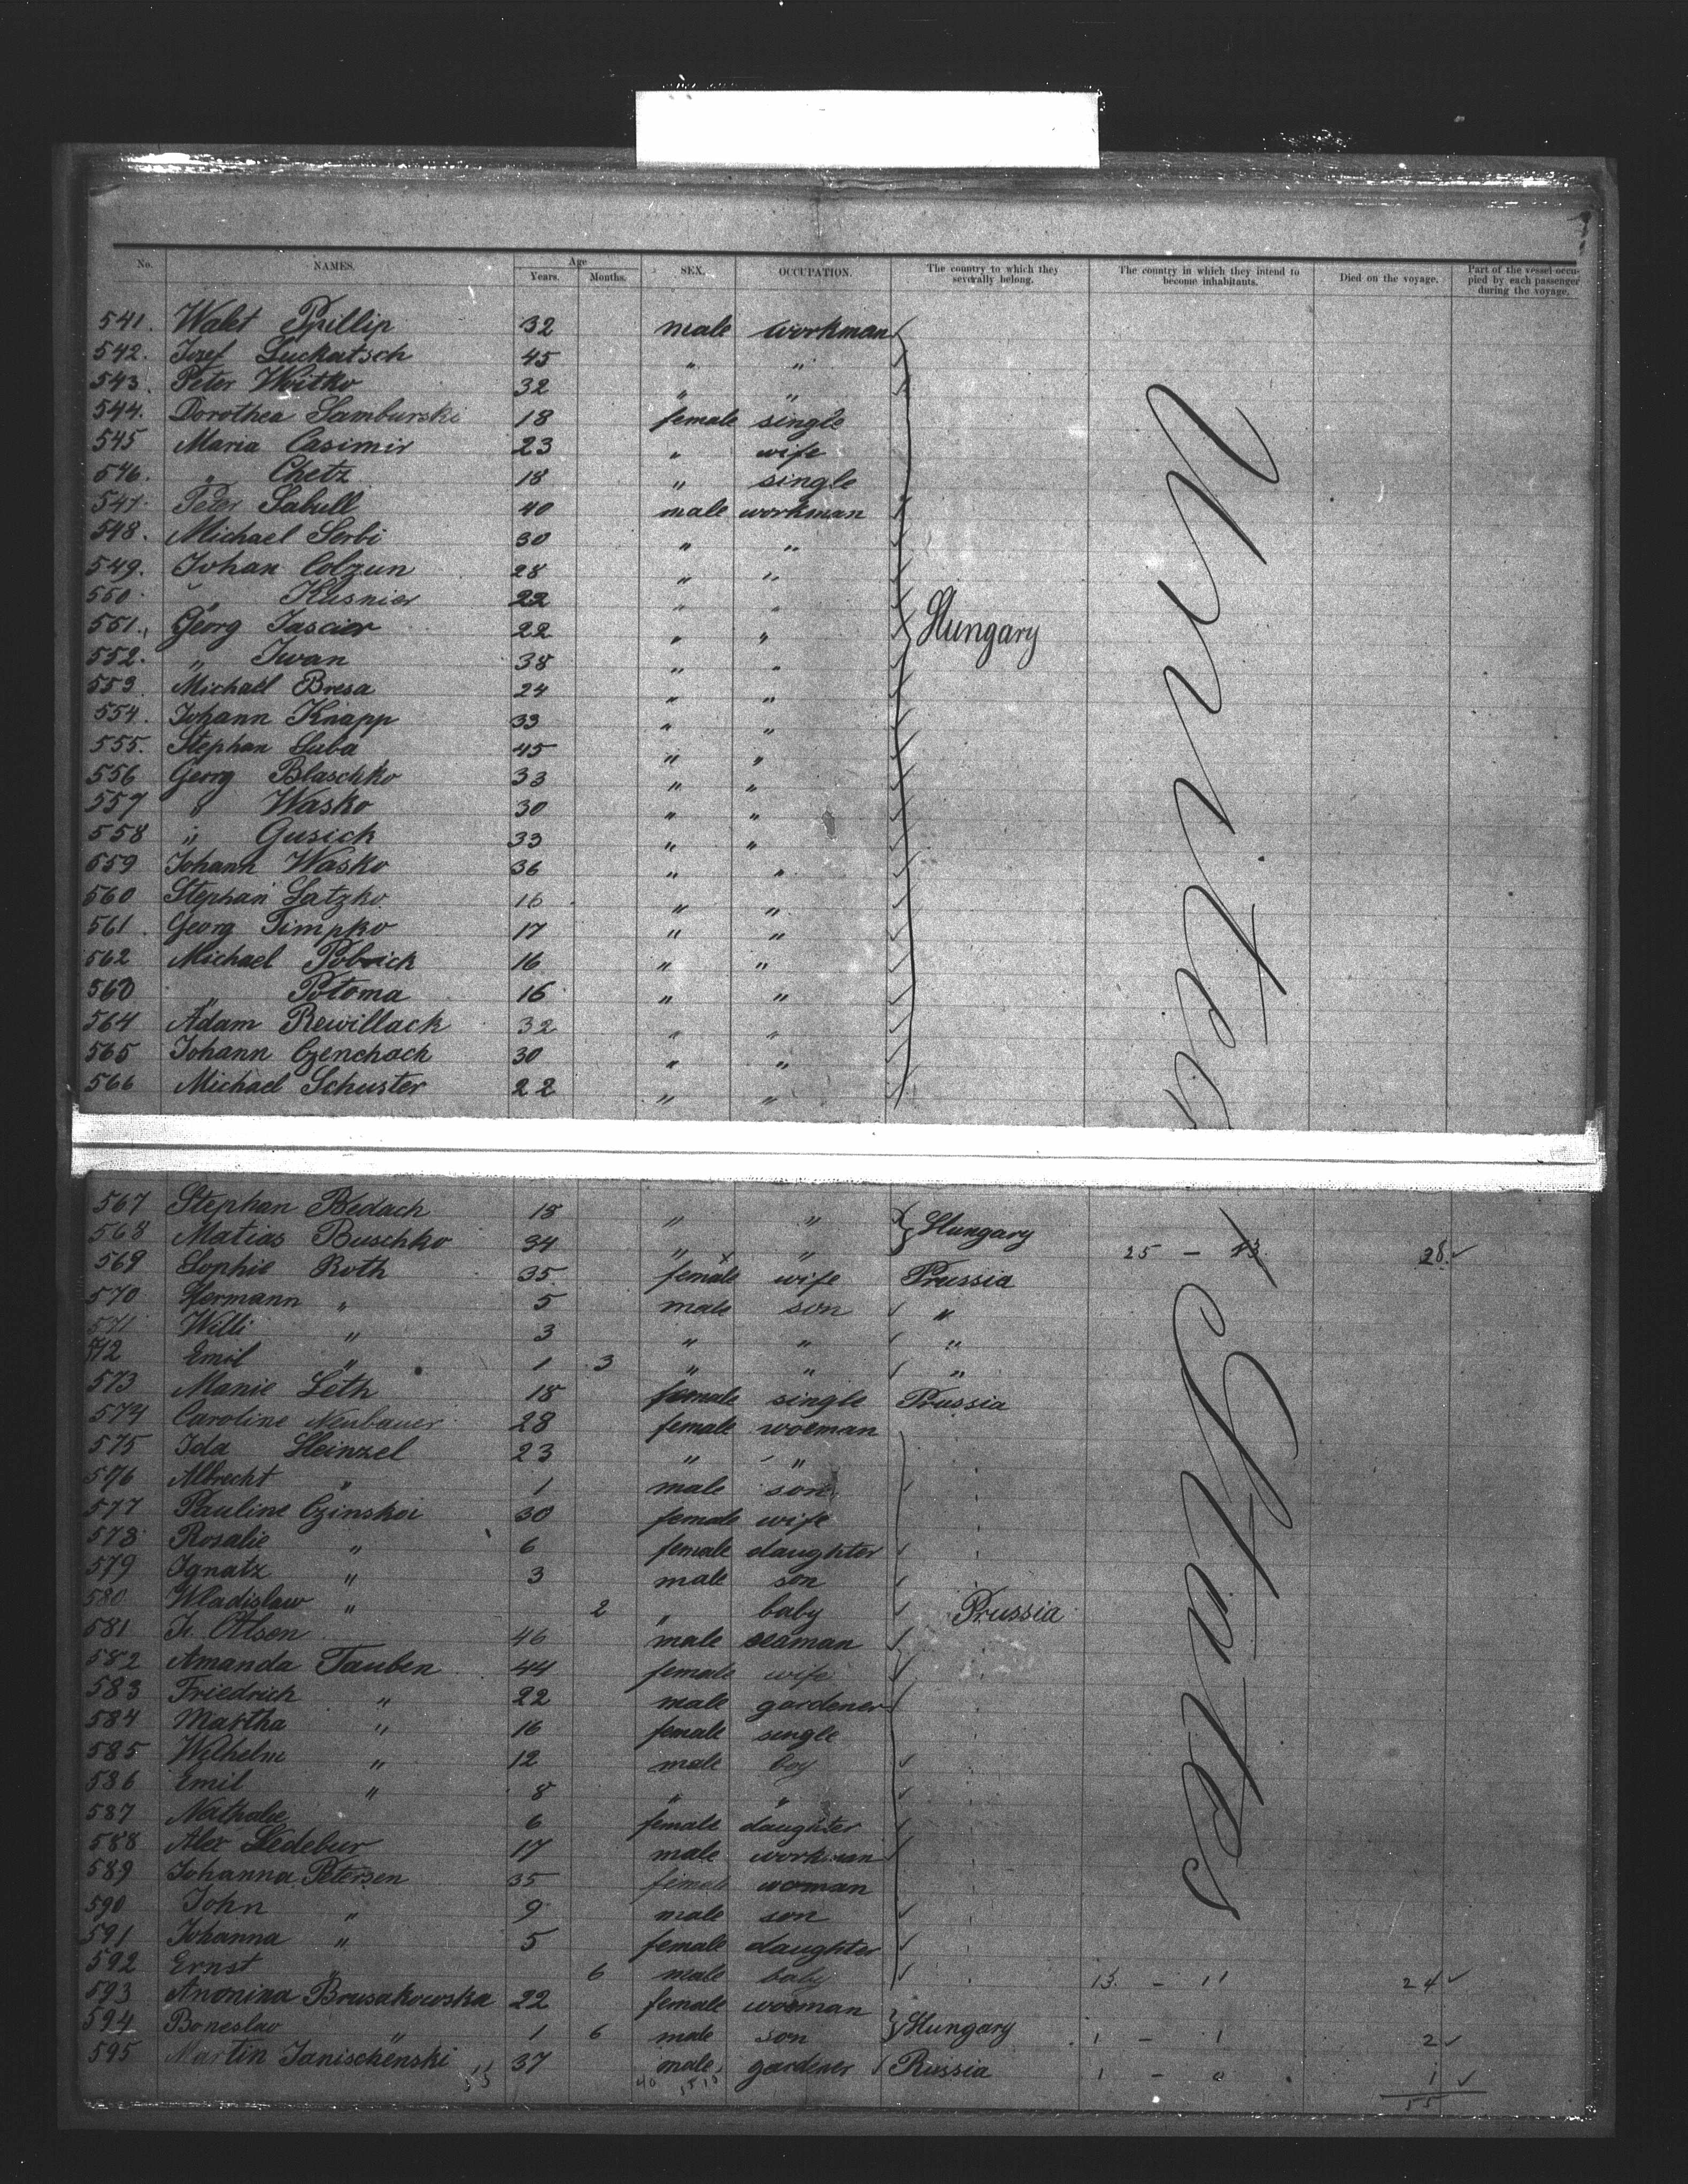 No. NAMES. Age Years. Months. SEX. OCCUPATION. The country to which they severally belong. The country in which they intend to become inhabitants. Died on the voyage. Part of the vessel occupied by each passenger during the voyage.
541. Walet Phillip 32 male workman
542. Josef Luckatsch 45 " "
543. Peter Woitko 32 " "
544. Dorothea Samburski 18 female single
545 Maria Casimir 23 " wife
546. " Chetz 18 " single
547. Peter Sabull 40 male workman
548. Michael Serbi 30 " "
549. Johan Colzun 28 " "
550. " Kusnier 22 " "
551. Georg Jascier 22 " " Hungary
552. " Iwan 38 " "
553. Michael Bresa 24 " "
554. Johann Knapp 33 " "
555. Stephan Luba 45 " "
556 Georg Blaschko 33 " "
557 " Wasko 30 " "
558 " Gusick 33 " "
559 Johann Wasko 36 " "
560 Stephan Latzko 16 " "
561. Georg Timpko 17 " "
562 Michael Pobrick 16 " "
563 " Potoma 16 " "
564 Adam Rewillack 32 " "
565 Johann Czenchach 30 " "
566 Michael Schuster 22 " "
United
567 Stephan Bedach 18 " "
568 Matias Buschko 34 " " Hungary 25 - 28
569 Sophie Roth 35 female wife Prussia
570 Hermann " 5 male son "
571 Willi " 3 " " "
572 Emil " 1 3 " " "
573 Marie Leth 18 female single Prussia
574 Caroline Neubauer 28 female woeman
575 Ida Heinzel 23 " "
576 Albrecht " 1 male son
577 Pauline Czinskoi 30 female wife
578 Rosalie " 6 female daughter
579 Ignatz " 3 male son
580 Wladislaw " 2 " baby Prussia
581 Olsen 46 male seaman
582 Amanda Tauben 44 female wife
583 Friedrich " 22 male gardener
584 Martha " 16 female single
585 Wilhelm " 12 male boy
586 Emil " 8 " "
587 Nathalie 6 female daughter
588 Alex Ledebur 17 male workman
589 Johanna Petersen 35 female woman
590 John " 9 male son
591 Johanna " 5 female daughter
592 Ernst " 6 male baby 13 - 11 24
593 Anonina Brusakowska 22 female woeman
594 Boneslav " 1 6 male son Hungary 1 - 1 2
595 Martin Janischenski 37 male gardener Russia 1 - " 1
55 40 15 55
States